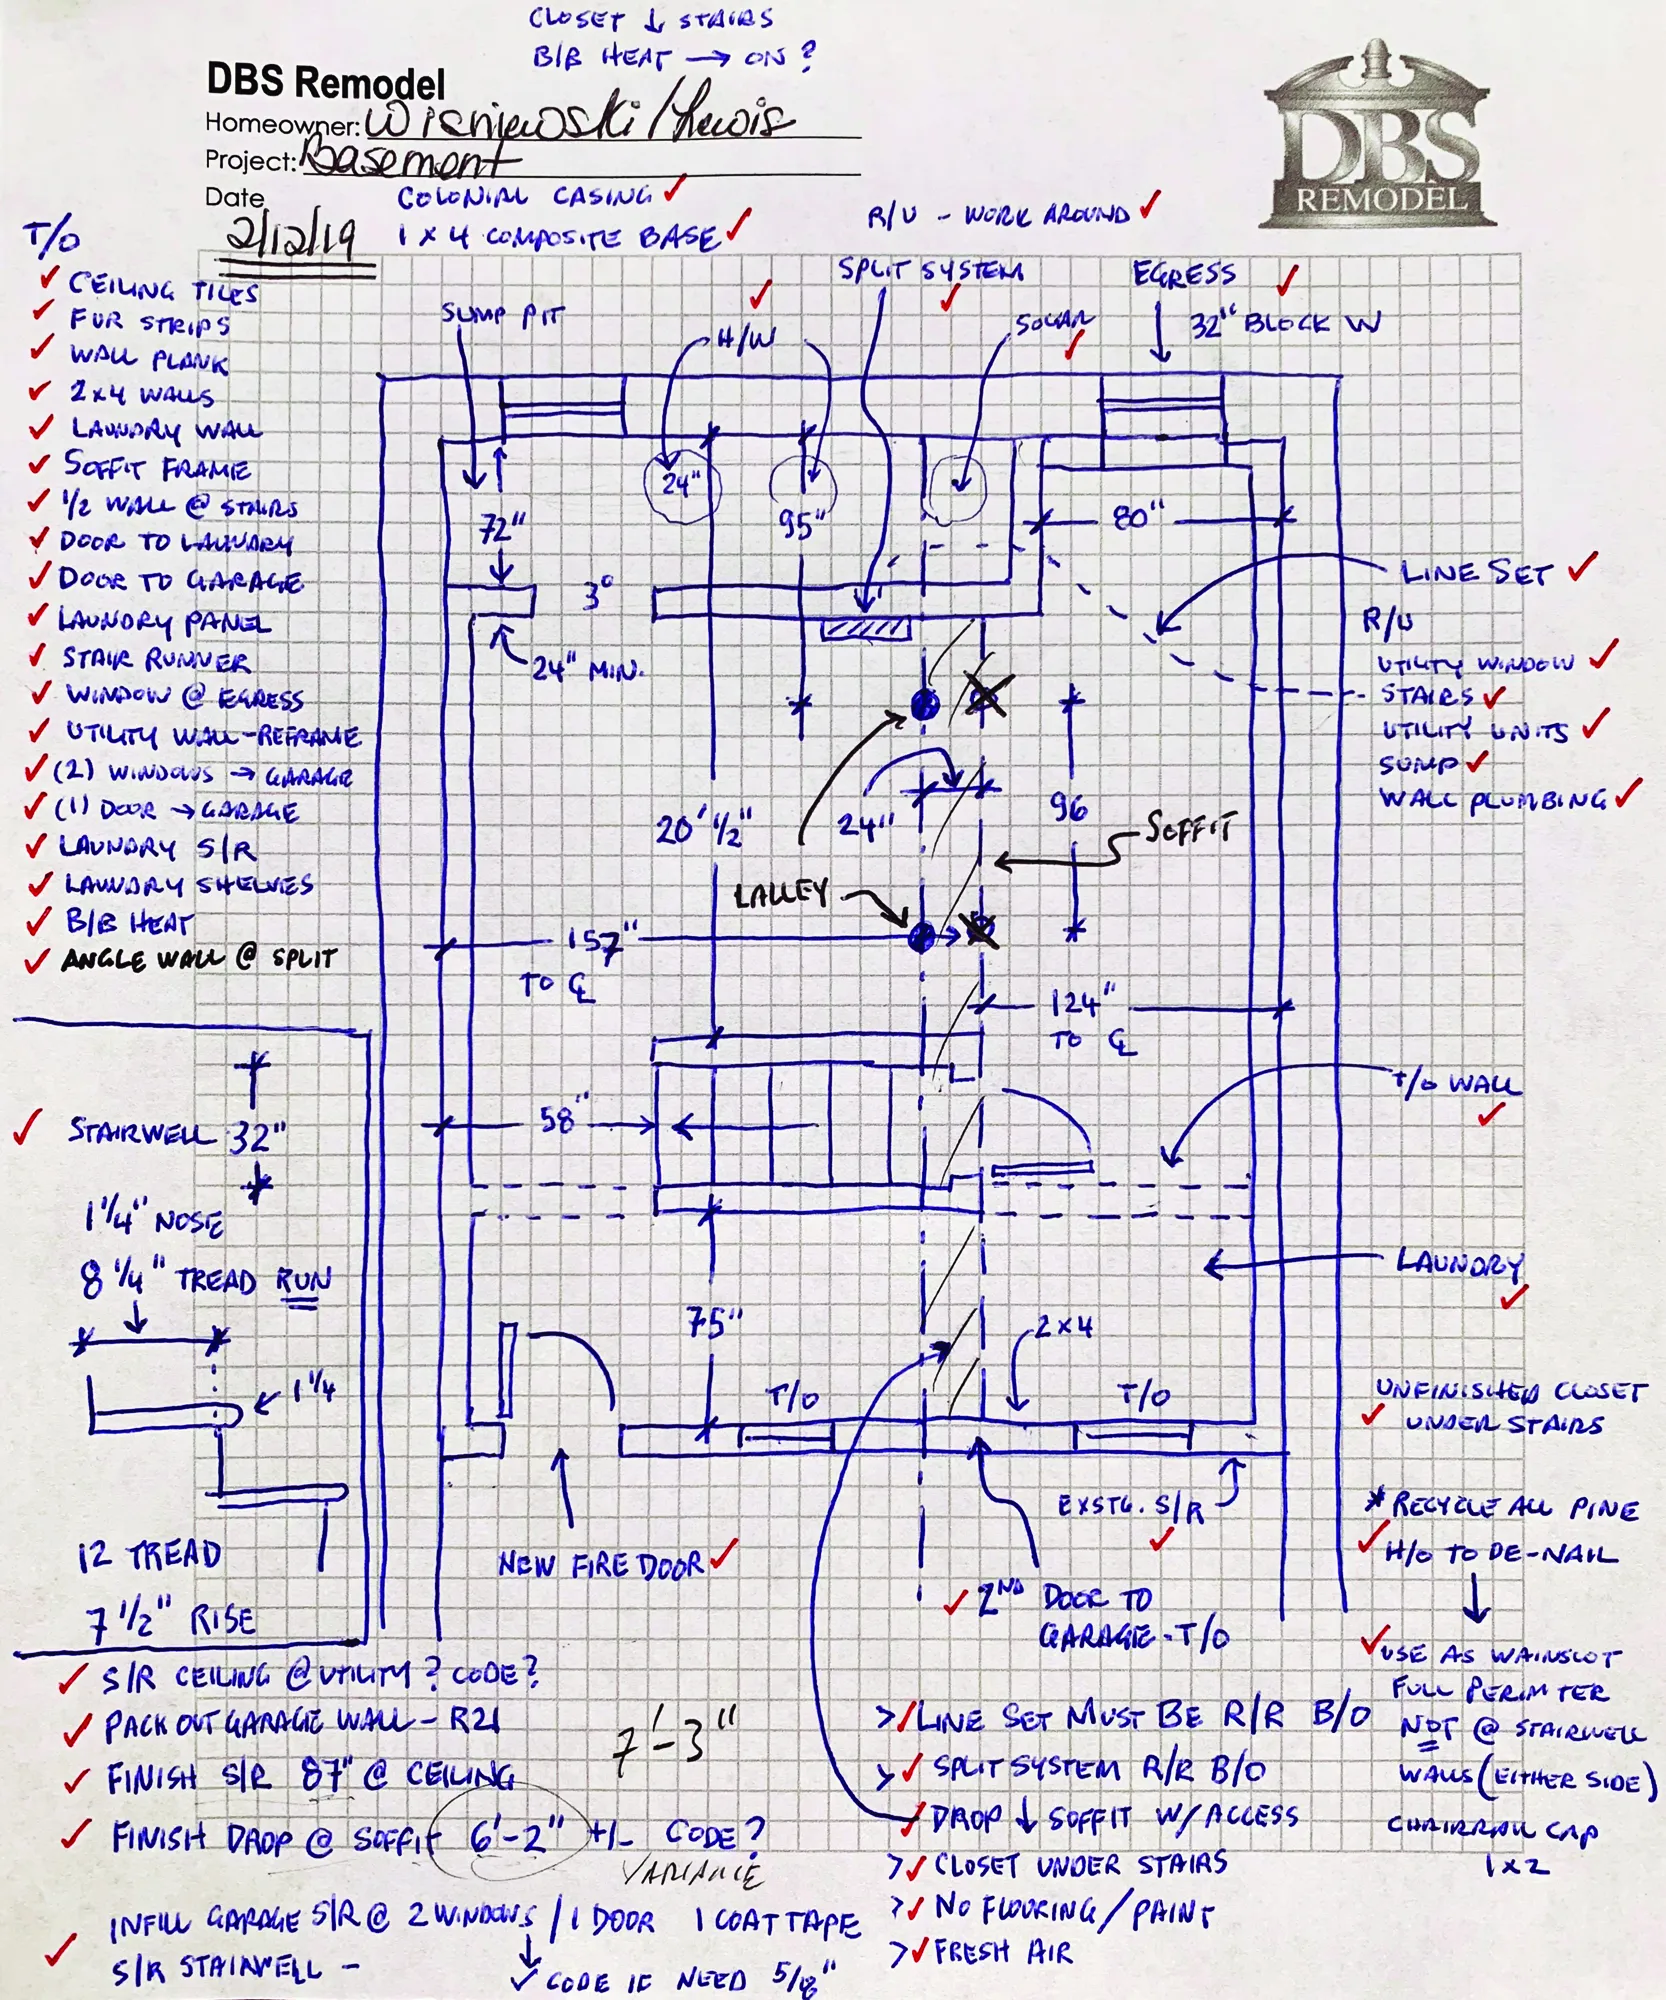 CLOSET ↓ STAIRS
B/B HEAT → ON ?
DBS Remodel
Homeowner: Wisniewski / Lewis
Project: Basement
Date
2/12/19
DBS
REMODEL
COLONIAL CASING ✓
1 x 4 COMPOSITE BASE ✓
R/U - WORK AROUND ✓
T/O
✓ CEILING TILES
✓ FUR STRIPS
✓ WALL PLANK
✓ 2x4 WALLS
✓ LAUNDRY WALL
✓ SOFFIT FRAME
✓ 1/2 WALL @ STAIRS
✓ DOOR TO LAUNDRY
✓ DOOR TO GARAGE
✓ LAUNDRY PANEL
✓ STAIR RUNNER
✓ WINDOW @ EGRESS
✓ UTILITY WALL-REFRAME
✓ (2) WINDOWS → GARAGE
✓ (1) DOOR → GARAGE
✓ LAUNDRY S/R
✓ LAUNDRY SHELVES
✓ B/B HEAT
✓ ANGLE WALL @ SPLIT
SUMP PIT
H/W ✓
SPLIT SYSTEM ✓
SOLAR ✓
EGRESS ✓
32" BLOCK W
24"
72"
95"
80"
3°
24" MIN.
LINE SET ✓
R/U
UTILITY WINDOW ✓
STAIRS ✓
UTILITY UNITS ✓
SUMP ✓
WALL PLUMBING ✓
20' 1/2"
24"
96
SOFFIT
LALLEY
157"
TO ℄
124"
TO ℄
58"
T/O WALL ✓
LAUNDRY ✓
75"
2x4
T/O
T/O
EXSTG. S/R ✓
NEW FIRE DOOR ✓
✓ 2ND DOOR TO
GARAGE - T/O
✓ STAIRWELL 32"
1 1/4" NOSE
8 1/4" TREAD RUN
1 1/4
12 TREAD
7 1/2" RISE
UNFINISHED CLOSET
✓ UNDER STAIRS
* RECYCLE ALL PINE
✓ H/O TO DE-NAIL
✓ USE AS WAINSCOT
FULL PERIMTER
NOT @ STAIRWELL
WALLS (EITHER SIDE)
CHAIRRAIL CAP
1x2
✓ S/R CEILING @ UTILITY? CODE?
✓ PACK OUT GARAGE WALL - R21
✓ FINISH S/R 87" @ CEILING
7'-3"
✓ FINISH DROP @ SOFFIT 6'-2" +/- CODE?
VARIANCE
INFILL GARAGE S/R @ 2 WINDOWS / 1 DOOR 1 COAT TAPE
✓ S/R STAIRWELL -
✓ CODE IF NEED 5/8"
> ✓ LINE SET MUST BE R/R B/O
> ✓ SPLIT SYSTEM R/R B/O
✓ DROP ↓ SOFFIT W/ACCESS
> ✓ CLOSET UNDER STAIRS
> ✓ NO FLOORING / PAINT
> ✓ FRESH AIR